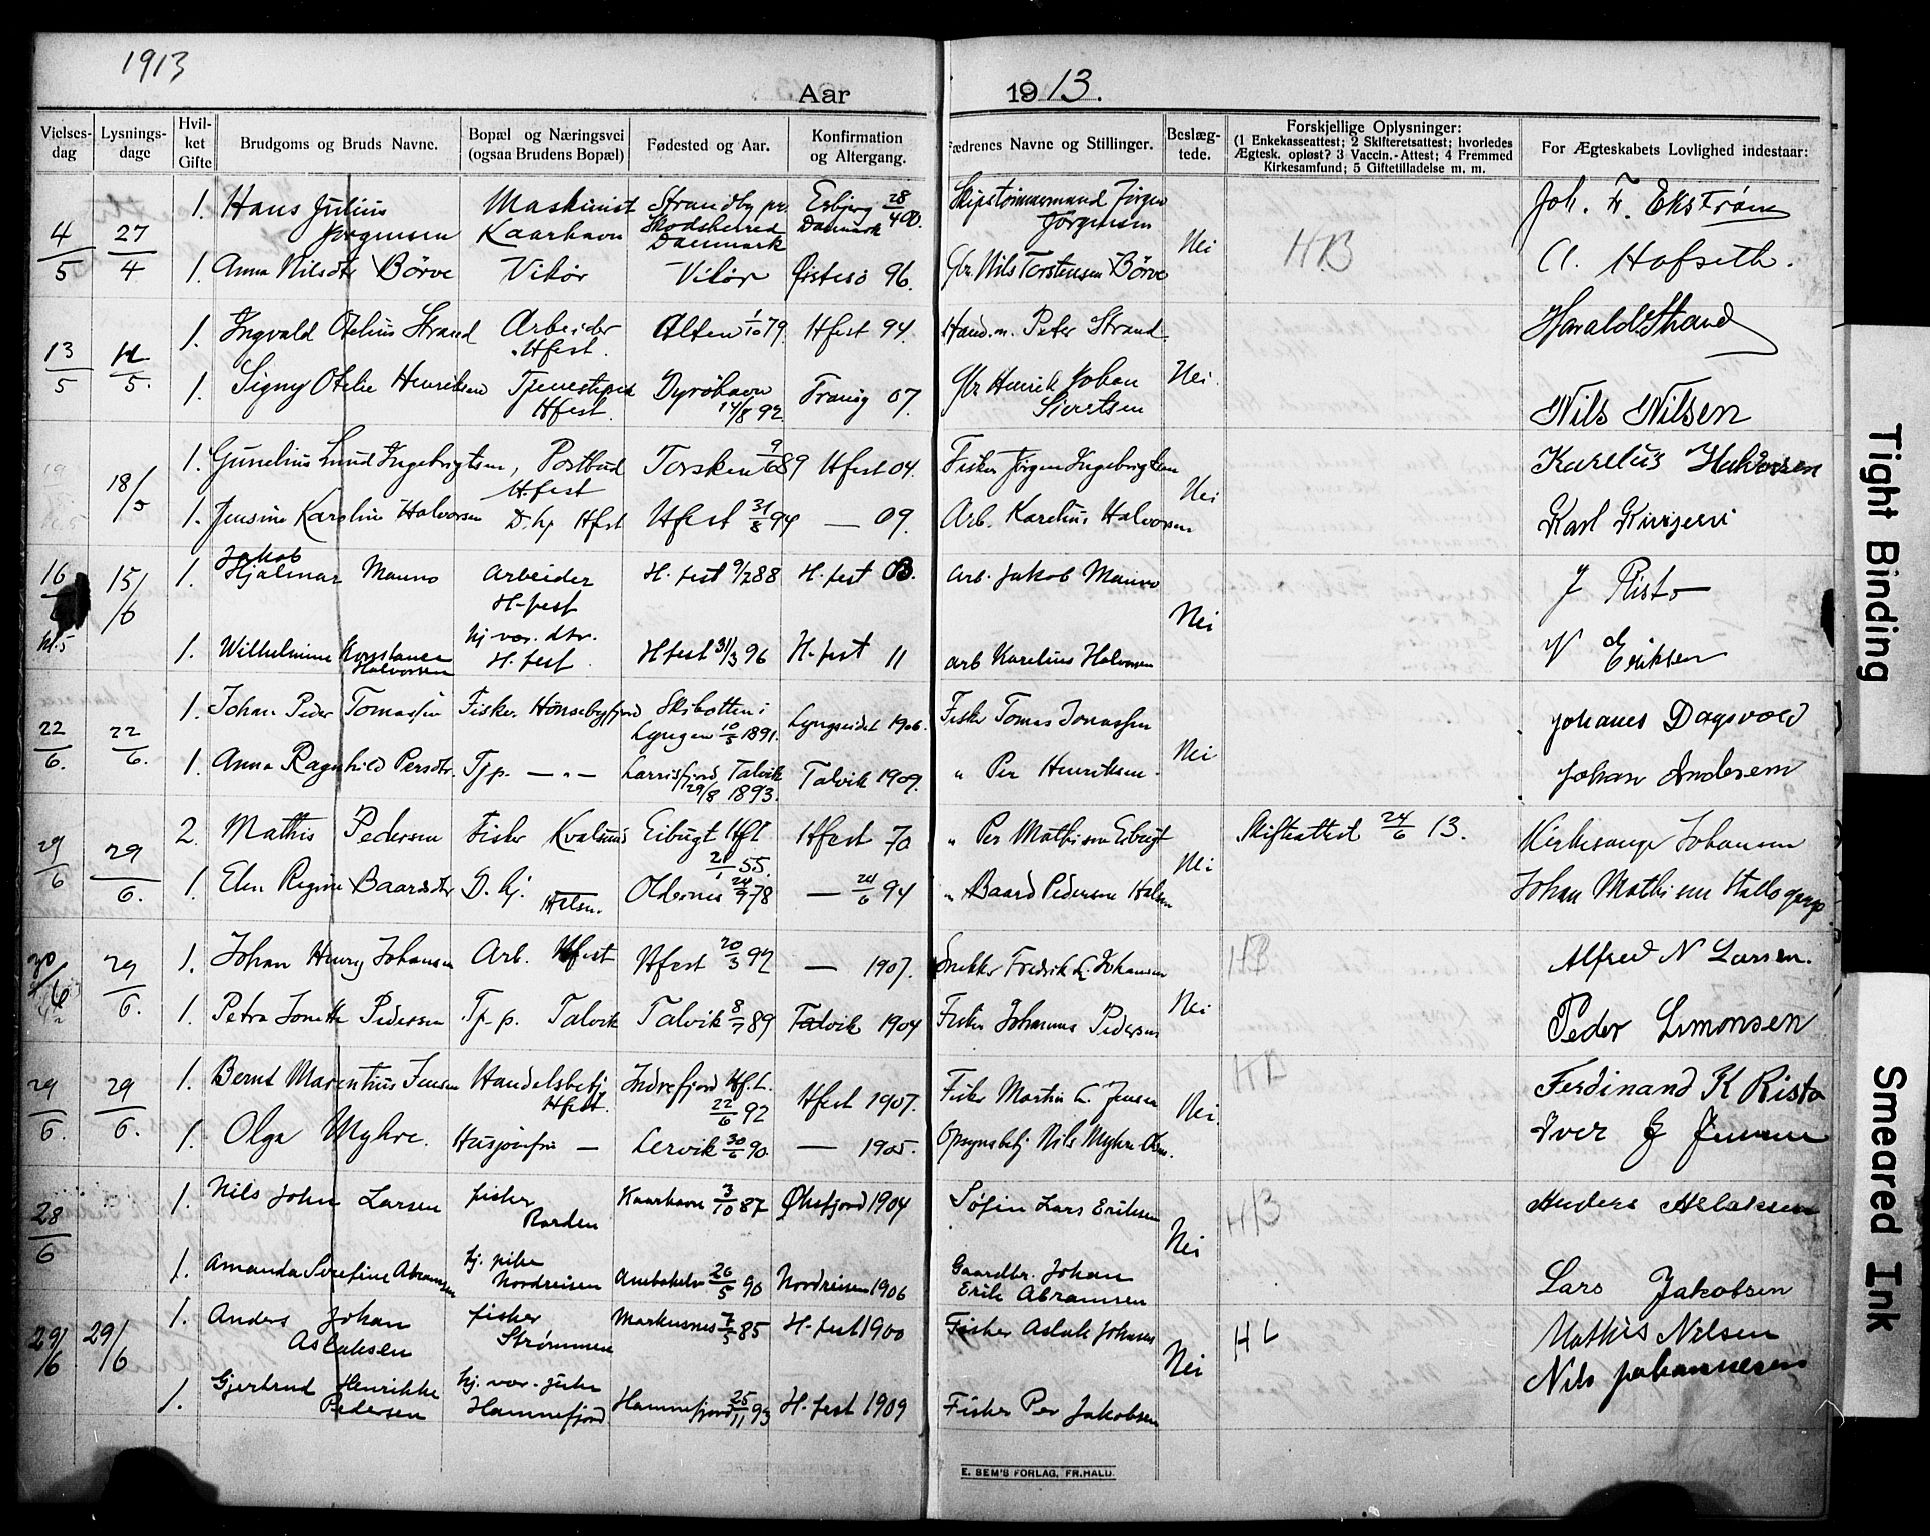 1913
Aar 1913.
Vielses-dag
Lysnings-dage
Hvil-ket Gifte
Brudgoms og Bruds Navne.
Bopæl og Næringsvei (ogsaa Brudens Bopæl)
Fødested og Aar.
Konfirmation og Altergang.
Fædrenes Navne og Stillinger.
Beslæg-tede.
Forskjellige Oplysninger:
(1 Enkekasseattest; 2 Skifteretsattest; hvorledes
Ægtesk. opløst? 3 Vaccin.-Attest; 4 Fremmed
Kirkesamfund; 5 Giftetilladelse m. m.
For Ægteskabets Lovlighed indestaar:
4/5 27/4 1. Hans Julius Jørgensen Maskinist Kaarhavn Strandby pr. Danmark Esbjerg Danmark 28/4 00. Skipstømmermand Jørgen Jørgensen Nei HB Joh. Fr. Ekstrøm
1. Anna Nilsdtr Børve Vikør Vikør Østesø 96. Gbr. Nils Torstensen Børve A. Hofseth.
13/5 11/5. 1. Ingvald Otelius Strand Arbeider Hfest. Alten 1/10 79. Hfest 94. Hand.m. Peter Strand Nei. Harald Strand
1. Signy Otelie Henriksen Tjenestepike Hfest. Dyröhavn 14/8 92. Tranöy 07. Gbr Henrik Johan Sivertsen Nils Nilsen
18/5 1. Gunelius Lund Ingebrigtsen, Postbud Hfest Torsken 9/6 89 Hfest 04. Fisker Jörgen Ingebrigtsen Nei Karelius Halvorsen
1. Jensine Karoline Halvorsen D. hj. Hfest Hfest 31/8 94 — 09. Arb. Karelius Halvorsen Karl
16 15/6 1. Jakob Hjalmar Manno Arbeider H-fest H.fest 9/2 88 H.fest 03. Arb. Jakob Manno Nei J Risto
kl. 5 1. Wilhelmine Konstance Halvorsen hj. vær. dtr. H.fest Hfest 31/3 96 H.fest 11 arb Karelius Halvorsen N Eriksen
22/6. 22/6. 1. Johan Peder Tomassen Fisker. Hönsebyfjord Skibotten i Lyngen 10/5 1891. Lyngseidet 1906. Fisker Tomas Jonassen Nei Johanes Dagsvold
1. Anna Ragnhild Persdtr. Tjp. — " — Larrisfjord, Talvik 29/8 1893. Talvik 1909. " Per Henriksen. Johan Andersen
29/6 29/6. 2. Mathis Pedersen Fisker Kvalsund Eibugt Hft 21/1 55. Hfest 70 " Per Mathisen Eibugt Nei Skifteattest 24/6 13. Kirkesanger Johansen
1. Elen Regine Baardsdtr D. hj. Halsen. Oldernes 24/9 78 — 24/6 94 " Baard Pedersen Halsen Johan Mathisen
30/6 29/6. 1. Johan Henry Johansen Arb. Hfest Hfest 20/3 92 — 1907. Snekker Fredrik L. Johansen Nei HB Alfred N Larsen.
1. Petra Jonette Pedersen Tj.p. Talvik Talvik 8/7 89 Talvik 1904 Fisker Johannes Pedersen Peder Simonsen
29/6. 29/6. 1. Bernt Marentius Jensen Handelsbetj. Hfest. Indrefjord Hf.L. 22/6 92 Hfest 1907. Fisker Martin L. Jensen Nei. Ferdinand K Risto
1. Olga Myhre. Husjomfru — Lervik 30/6 90. — 1905. Opsynsbetj Nils Myhre Iver J Jensen
28/6 1. Nils John Larsen fisker Kaarhavn 3/10 87 Øksfjord 1904 Søfin Lars Eriksen Nei HB Anders Aslaksen
1. Amanda Serefine Abramsen hj. pike Nordreisen 26/5 90 Nordreisen 1906 Gaardbr. Johan Erik Abramsen Lars Jakobsen
29/6 29/6 1. Anders Johan Aslaksen fisker Strømmen Markusnes 7/5 85 H.fest 1900 Fisker Aslak Johnsen Nei HL Mathis Nilsen
1. Gjertrud Henrikke Pedersen hj. vær. pike Hamnefjord Hamnefjord 25/11 93 H.fest 1909 Fisker Per Jakobsen Nils Johannesen
E. SEM'S FORLAG, FR.HALD.
Tight Binding
Smeared Ink